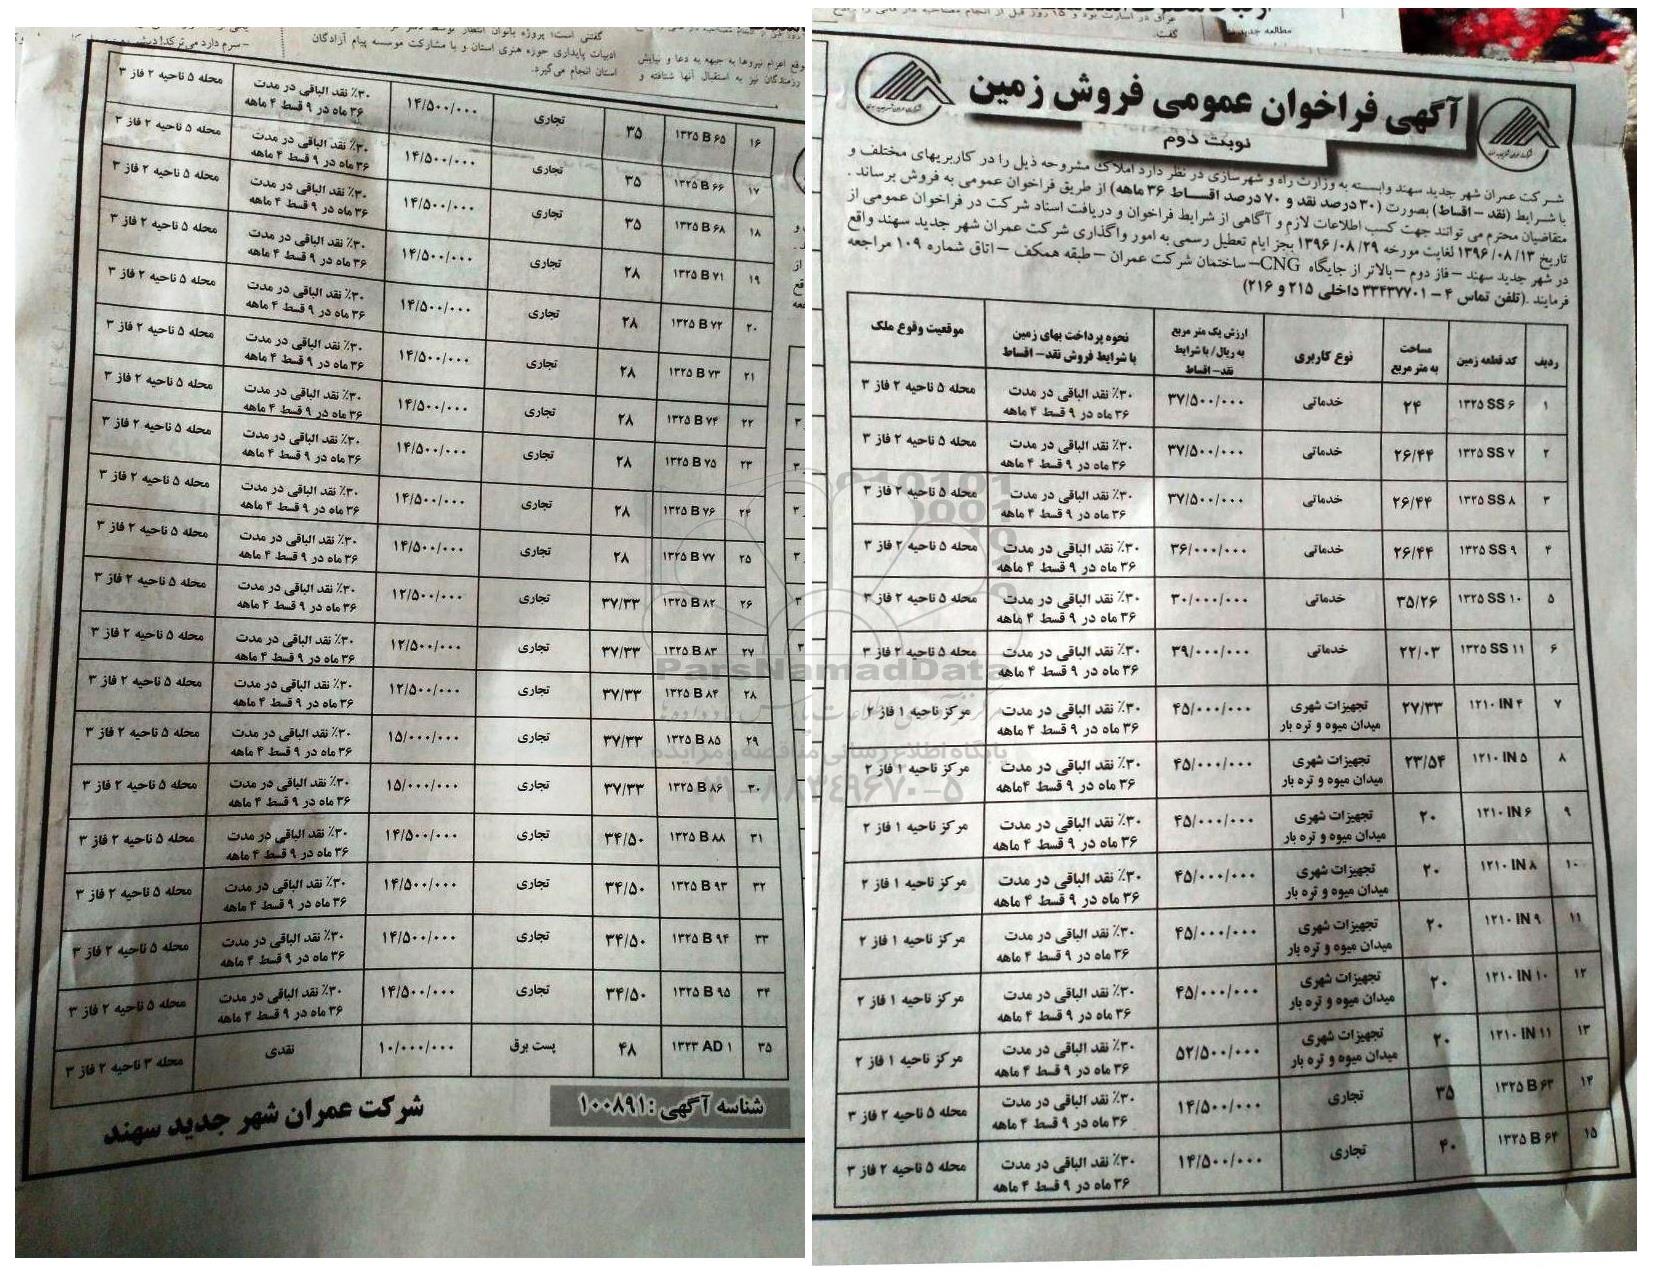 آگهی فراخوان عمومی فروش زمین
نوبت دوم
شرکت عمران شهر جدید سهند وابسته به وزارت راه و شهرسازی در نظر دارد املاک مشروحه ذیل را در کاربریهای مختلف و
با شرایط (نقد – اقساط) بصورت (۳۰ درصد نقد و ۷۰ درصد اقساط ۳۶ ماهه) از طریق فراخوان عمومی به فروش برساند .
متقاضیان محترم می توانند جهت کسب اطلاعات لازم و آگاهی از شرایط فراخوان و دریافت اسناد شرکت در فراخوان عمومی از
تاریخ ۱۳۹۶/۰۸/۱۳ لغایت مورخه ۱۳۹۶/۰۸/۲۹ بجز ایام تعطیل رسمی به امور واگذاری شرکت عمران شهر جدید سهند واقع
در شهر جدید سهند – فاز دوم – بالاتر از جایگاه CNG – ساختمان شرکت عمران – طبقه همکف – اتاق شماره ۱۰۹ مراجعه
فرمایند .(تلفن تماس ۴ – ۳۳۴۳۷۷۰۱ داخلی ۲۱۵ و ۲۱۶)
ردیف کد قطعه زمین مساحت به متر مربع نوع کاربری ارزش یک متر مربع به ریال/ با شرایط نقد – اقساط نحوه پرداخت بهای زمین با شرایط فروش نقد – اقساط موقعیت وقوع ملک
۱ ۱۳۲۵ SS ۶ ۲۴ خدماتی ۳۷/۵۰۰/۰۰۰ ۳۰٪ نقد الباقی در مدت ۳۶ ماه در ۹ قسط ۴ ماهه محله ۵ ناحیه ۲ فاز ۳
۲ ۱۳۲۵ SS ۷ ۲۶/۴۴ خدماتی ۳۷/۵۰۰/۰۰۰ ۳۰٪ نقد الباقی در مدت ۳۶ ماه در ۹ قسط ۴ ماهه محله ۵ ناحیه ۲ فاز ۳
۳ ۱۳۲۵ SS ۸ ۲۶/۴۴ خدماتی ۳۷/۵۰۰/۰۰۰ ۳۰٪ نقد الباقی در مدت ۳۶ ماه در ۹ قسط ۴ ماهه محله ۵ ناحیه ۲ فاز ۳
۴ ۱۳۲۵ SS ۹ ۲۶/۴۴ خدماتی ۳۶/۰۰۰/۰۰۰ ۳۰٪ نقد الباقی در مدت ۳۶ ماه در ۹ قسط ۴ ماهه محله ۵ ناحیه ۲ فاز ۳
۵ ۱۳۲۵ SS ۱۰ ۳۵/۲۶ خدماتی ۳۰/۰۰۰/۰۰۰ ۳۰٪ نقد الباقی در مدت ۳۶ ماه در ۹ قسط ۴ ماهه محله ۵ ناحیه ۲ فاز ۳
۶ ۱۳۲۵ SS ۱۱ ۲۲/۰۳ خدماتی ۳۹/۰۰۰/۰۰۰ ۳۰٪ نقد الباقی در مدت ۳۶ ماه در ۹ قسط ۴ ماهه محله ۵ ناحیه ۲ فاز ۳
۷ ۱۲۱۰ IN ۴ ۲۷/۳۳ تجهیزات شهری میدان میوه و تره بار ۴۵/۰۰۰/۰۰۰ ۳۰٪ نقد الباقی در مدت ۳۶ ماه در ۹ قسط ۴ ماهه مرکز ناحیه ۱ فاز ۲
۸ ۱۲۱۰ IN ۵ ۲۳/۵۴ تجهیزات شهری میدان میوه و تره بار ۴۵/۰۰۰/۰۰۰ ۳۰٪ نقد الباقی در مدت ۳۶ ماه در ۹ قسط ۴ ماهه مرکز ناحیه ۱ فاز ۲
۹ ۱۲۱۰ IN ۶ ۲۰ تجهیزات شهری میدان میوه و تره بار ۴۵/۰۰۰/۰۰۰ ۳۰٪ نقد الباقی در مدت ۳۶ ماه در ۹ قسط ۴ ماهه مرکز ناحیه ۱ فاز ۲
۱۰ ۱۲۱۰ IN ۸ ۲۰ تجهیزات شهری میدان میوه و تره بار ۴۵/۰۰۰/۰۰۰ ۳۰٪ نقد الباقی در مدت ۳۶ ماه در ۹ قسط ۴ ماهه مرکز ناحیه ۱ فاز ۲
۱۱ ۱۲۱۰ IN ۹ ۲۰ تجهیزات شهری میدان میوه و تره بار ۴۵/۰۰۰/۰۰۰ ۳۰٪ نقد الباقی در مدت ۳۶ ماه در ۹ قسط ۴ ماهه مرکز ناحیه ۱ فاز ۲
۱۲ ۱۲۱۰ IN ۱۰ ۲۰ تجهیزات شهری میدان میوه و تره بار ۴۵/۰۰۰/۰۰۰ ۳۰٪ نقد الباقی در مدت ۳۶ ماه در ۹ قسط ۴ ماهه مرکز ناحیه ۱ فاز ۲
۱۳ ۱۲۱۰ IN ۱۱ ۲۰ تجهیزات شهری میدان میوه و تره بار ۵۲/۵۰۰/۰۰۰ ۳۰٪ نقد الباقی در مدت ۳۶ ماه در ۹ قسط ۴ ماهه مرکز ناحیه ۱ فاز ۲
۱۴ ۱۳۲۵ B ۶۳ ۳۵ تجاری ۱۴/۵۰۰/۰۰۰ ۳۰٪ نقد الباقی در مدت ۳۶ ماه در ۹ قسط ۴ ماهه محله ۵ ناحیه ۲ فاز ۳
۱۵ ۱۳۲۵ B ۶۴ ۴۰ تجاری ۱۴/۵۰۰/۰۰۰ ۳۰٪ نقد الباقی در مدت ۳۶ ماه در ۹ قسط ۴ ماهه محله ۵ ناحیه ۲ فاز ۳
۱۶ ۱۳۲۵ B ۶۵ ۳۵ تجاری ۱۴/۵۰۰/۰۰۰ ۳۰٪ نقد الباقی در مدت ۳۶ ماه در ۹ قسط ۴ ماهه محله ۵ ناحیه ۲ فاز ۳
۱۷ ۱۳۲۵ B ۶۶ ۳۵ تجاری ۱۴/۵۰۰/۰۰۰ ۳۰٪ نقد الباقی در مدت ۳۶ ماه در ۹ قسط ۴ ماهه محله ۵ ناحیه ۲ فاز ۳
۱۸ ۱۳۲۵ B ۶۸ ۳۵ تجاری ۱۴/۵۰۰/۰۰۰ ۳۰٪ نقد الباقی در مدت ۳۶ ماه در ۹ قسط ۴ ماهه محله ۵ ناحیه ۲ فاز ۳
۱۹ ۱۳۲۵ B ۷۱ ۲۸ تجاری ۱۴/۵۰۰/۰۰۰ ۳۰٪ نقد الباقی در مدت ۳۶ ماه در ۹ قسط ۴ ماهه محله ۵ ناحیه ۲ فاز ۳
۲۰ ۱۳۲۵ B ۷۲ ۲۸ تجاری ۱۴/۵۰۰/۰۰۰ ۳۰٪ نقد الباقی در مدت ۳۶ ماه در ۹ قسط ۴ ماهه محله ۵ ناحیه ۲ فاز ۳
۲۱ ۱۳۲۵ B ۷۳ ۲۸ تجاری ۱۴/۵۰۰/۰۰۰ ۳۰٪ نقد الباقی در مدت ۳۶ ماه در ۹ قسط ۴ ماهه محله ۵ ناحیه ۲ فاز ۳
۲۲ ۱۳۲۵ B ۷۴ ۲۸ تجاری ۱۴/۵۰۰/۰۰۰ ۳۰٪ نقد الباقی در مدت ۳۶ ماه در ۹ قسط ۴ ماهه محله ۵ ناحیه ۲ فاز ۳
۲۳ ۱۳۲۵ B ۷۵ ۲۸ تجاری ۱۴/۵۰۰/۰۰۰ ۳۰٪ نقد الباقی در مدت ۳۶ ماه در ۹ قسط ۴ ماهه محله ۵ ناحیه ۲ فاز ۳
۲۴ ۱۳۲۵ B ۷۶ ۲۸ تجاری ۱۴/۵۰۰/۰۰۰ ۳۰٪ نقد الباقی در مدت ۳۶ ماه در ۹ قسط ۴ ماهه محله ۵ ناحیه ۲ فاز ۳
۲۵ ۱۳۲۵ B ۷۷ ۲۸ تجاری ۱۴/۵۰۰/۰۰۰ ۳۰٪ نقد الباقی در مدت ۳۶ ماه در ۹ قسط ۴ ماهه محله ۵ ناحیه ۲ فاز ۳
۲۶ ۱۳۲۵ B ۸۲ ۳۷/۳۳ تجاری ۱۲/۵۰۰/۰۰۰ ۳۰٪ نقد الباقی در مدت ۳۶ ماه در ۹ قسط ۴ ماهه محله ۵ ناحیه ۲ فاز ۳
۲۷ ۱۳۲۵ B ۸۳ ۳۷/۳۳ تجاری ۱۲/۵۰۰/۰۰۰ ۳۰٪ نقد الباقی در مدت ۳۶ ماه در ۹ قسط ۴ ماهه محله ۵ ناحیه ۲ فاز ۳
۲۸ ۱۳۲۵ B ۸۴ ۳۷/۳۳ تجاری ۱۲/۵۰۰/۰۰۰ ۳۰٪ نقد الباقی در مدت ۳۶ ماه در ۹ قسط ۴ ماهه محله ۵ ناحیه ۲ فاز ۳
۲۹ ۱۳۲۵ B ۸۵ ۳۷/۳۳ تجاری ۱۵/۰۰۰/۰۰۰ ۳۰٪ نقد الباقی در مدت ۳۶ ماه در ۹ قسط ۴ ماهه محله ۵ ناحیه ۲ فاز ۳
۳۰ ۱۳۲۵ B ۸۶ ۳۷/۳۳ تجاری ۱۵/۰۰۰/۰۰۰ ۳۰٪ نقد الباقی در مدت ۳۶ ماه در ۹ قسط ۴ ماهه محله ۵ ناحیه ۲ فاز ۳
۳۱ ۱۳۲۵ B ۸۸ ۳۴/۵۰ تجاری ۱۴/۵۰۰/۰۰۰ ۳۰٪ نقد الباقی در مدت ۳۶ ماه در ۹ قسط ۴ ماهه محله ۵ ناحیه ۲ فاز ۳
۳۲ ۱۳۲۵ B ۹۳ ۳۴/۵۰ تجاری ۱۴/۵۰۰/۰۰۰ ۳۰٪ نقد الباقی در مدت ۳۶ ماه در ۹ قسط ۴ ماهه محله ۵ ناحیه ۲ فاز ۳
۳۳ ۱۳۲۵ B ۹۴ ۳۴/۵۰ تجاری ۱۴/۵۰۰/۰۰۰ ۳۰٪ نقد الباقی در مدت ۳۶ ماه در ۹ قسط ۴ ماهه محله ۵ ناحیه ۲ فاز ۳
۳۴ ۱۳۲۵ B ۹۵ ۳۴/۵۰ تجاری ۱۴/۵۰۰/۰۰۰ ۳۰٪ نقد الباقی در مدت ۳۶ ماه در ۹ قسط ۴ ماهه محله ۵ ناحیه ۲ فاز ۳
۳۵ ۱۳۳۳ AD ۱ ۴۸ پست برق ۱۰/۰۰۰/۰۰۰ نقدی محله ۳ ناحیه ۲ فاز ۳
شناسه آگهی : ۱۰۰۸۹۱
شرکت عمران شهر جدید سهند
ParsNamadData
پایگاه اطلاع رسانی مناقصه و مزایده
۰۲۱-۸۸۳۴۹۶۷۰-۵